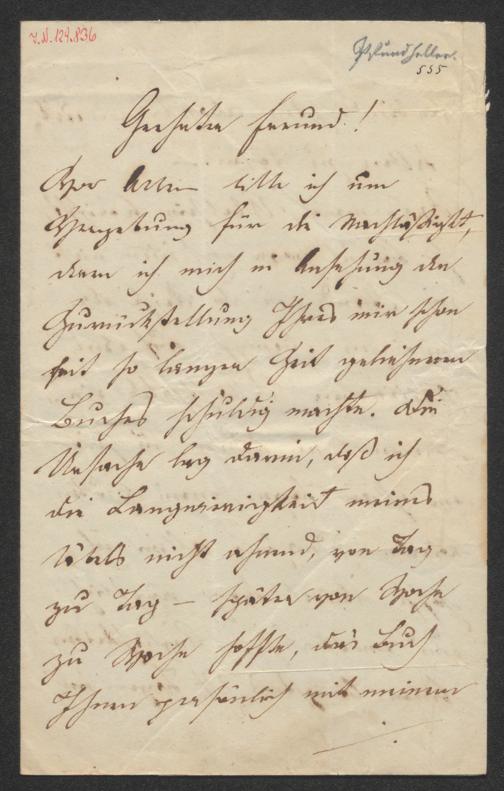 I.N. 129.836
555
Geehrter Freund!
Vor Allem bitte ich um
Vergebung für die Nachläßigkt,
deren ich mich in Ansehung der
Zurückstellung Ihres mir schon
seit so langer Zeit geliehenen
Buches schuldig machte. Die
Ursache lag darin, daß ich
die Langwierigkeit meines
Übels nicht ahnend, von Tag
zu Tag – später von Woche
zu Woche hoffte, das Buch
Ihnen persönlich mit meinem